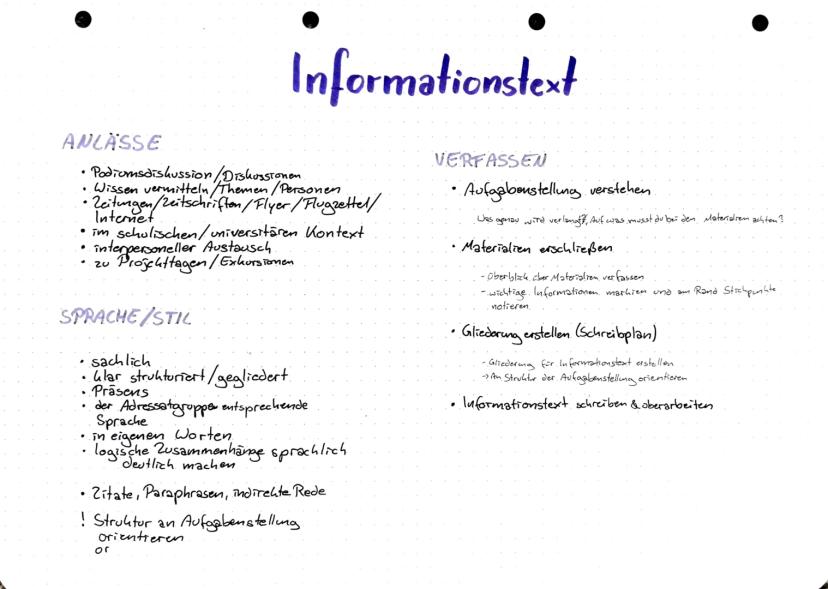 Informationstext
ANLÄSSE
• Podiumsdiskussion/Diskussionen
• Wissen vermitteln/Themen/Personen
• Zeitungen/Zeitschriften/Flyer/Flugzettel/
Internet
• im schulischen/universitären Kontext
• interpersoneller Austausch
• zu Projekttagen/Exkursionen
SPRACHE/STIL
• sachlich
• klar strukturiert/gegliedert
• Präsens
• der Adressatgruppe entsprechende
Sprache
• in eigenen Worten
• logische Zusammenhänge sprachlich
deutlich machen
• Zitate, Paraphrasen, indirekte Rede
! Struktur an Aufgabenstellung
orientieren
or
VERFASSEN
• Aufgabenstellung verstehen
Was genau wird verlangt?, Auf was musst du bei den Materialien achten?
• Materialien erschließen
- Überblick über Materialien verfassen
- wichtige Informationen markieren und am Rand Stichpunkte
notieren
• Gliederung erstellen (Schreibplan)
- Gliederung für Informationstext erstellen
→ An Struktur der Aufgabenstellung orientieren
• Informationstext schreiben & überarbeiten